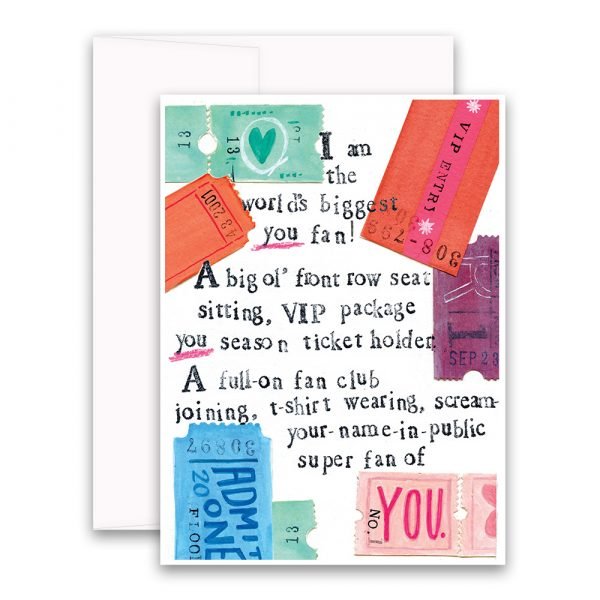 13
13
13
I am
the
world's biggest
you fan!
VIP ENTRY
30.8-798
48 2001
A big ol' front row seat
sitting, VIP package
you season ticket holder.
SEP 23
A full-on fan club
joining, t-shirt wearing, scream-
your-name-in-public
super fan of
30897
ADMIT
ONE
20
FLOO
13
No.
YOU.